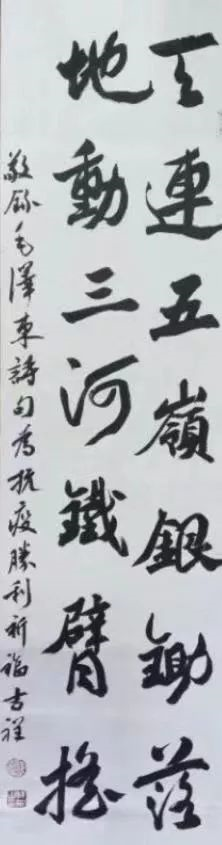 天連五嶺銀鋤落
地動三河鐵臂搖
敬錄毛澤東詩句為抗疫勝利祈福吉祥